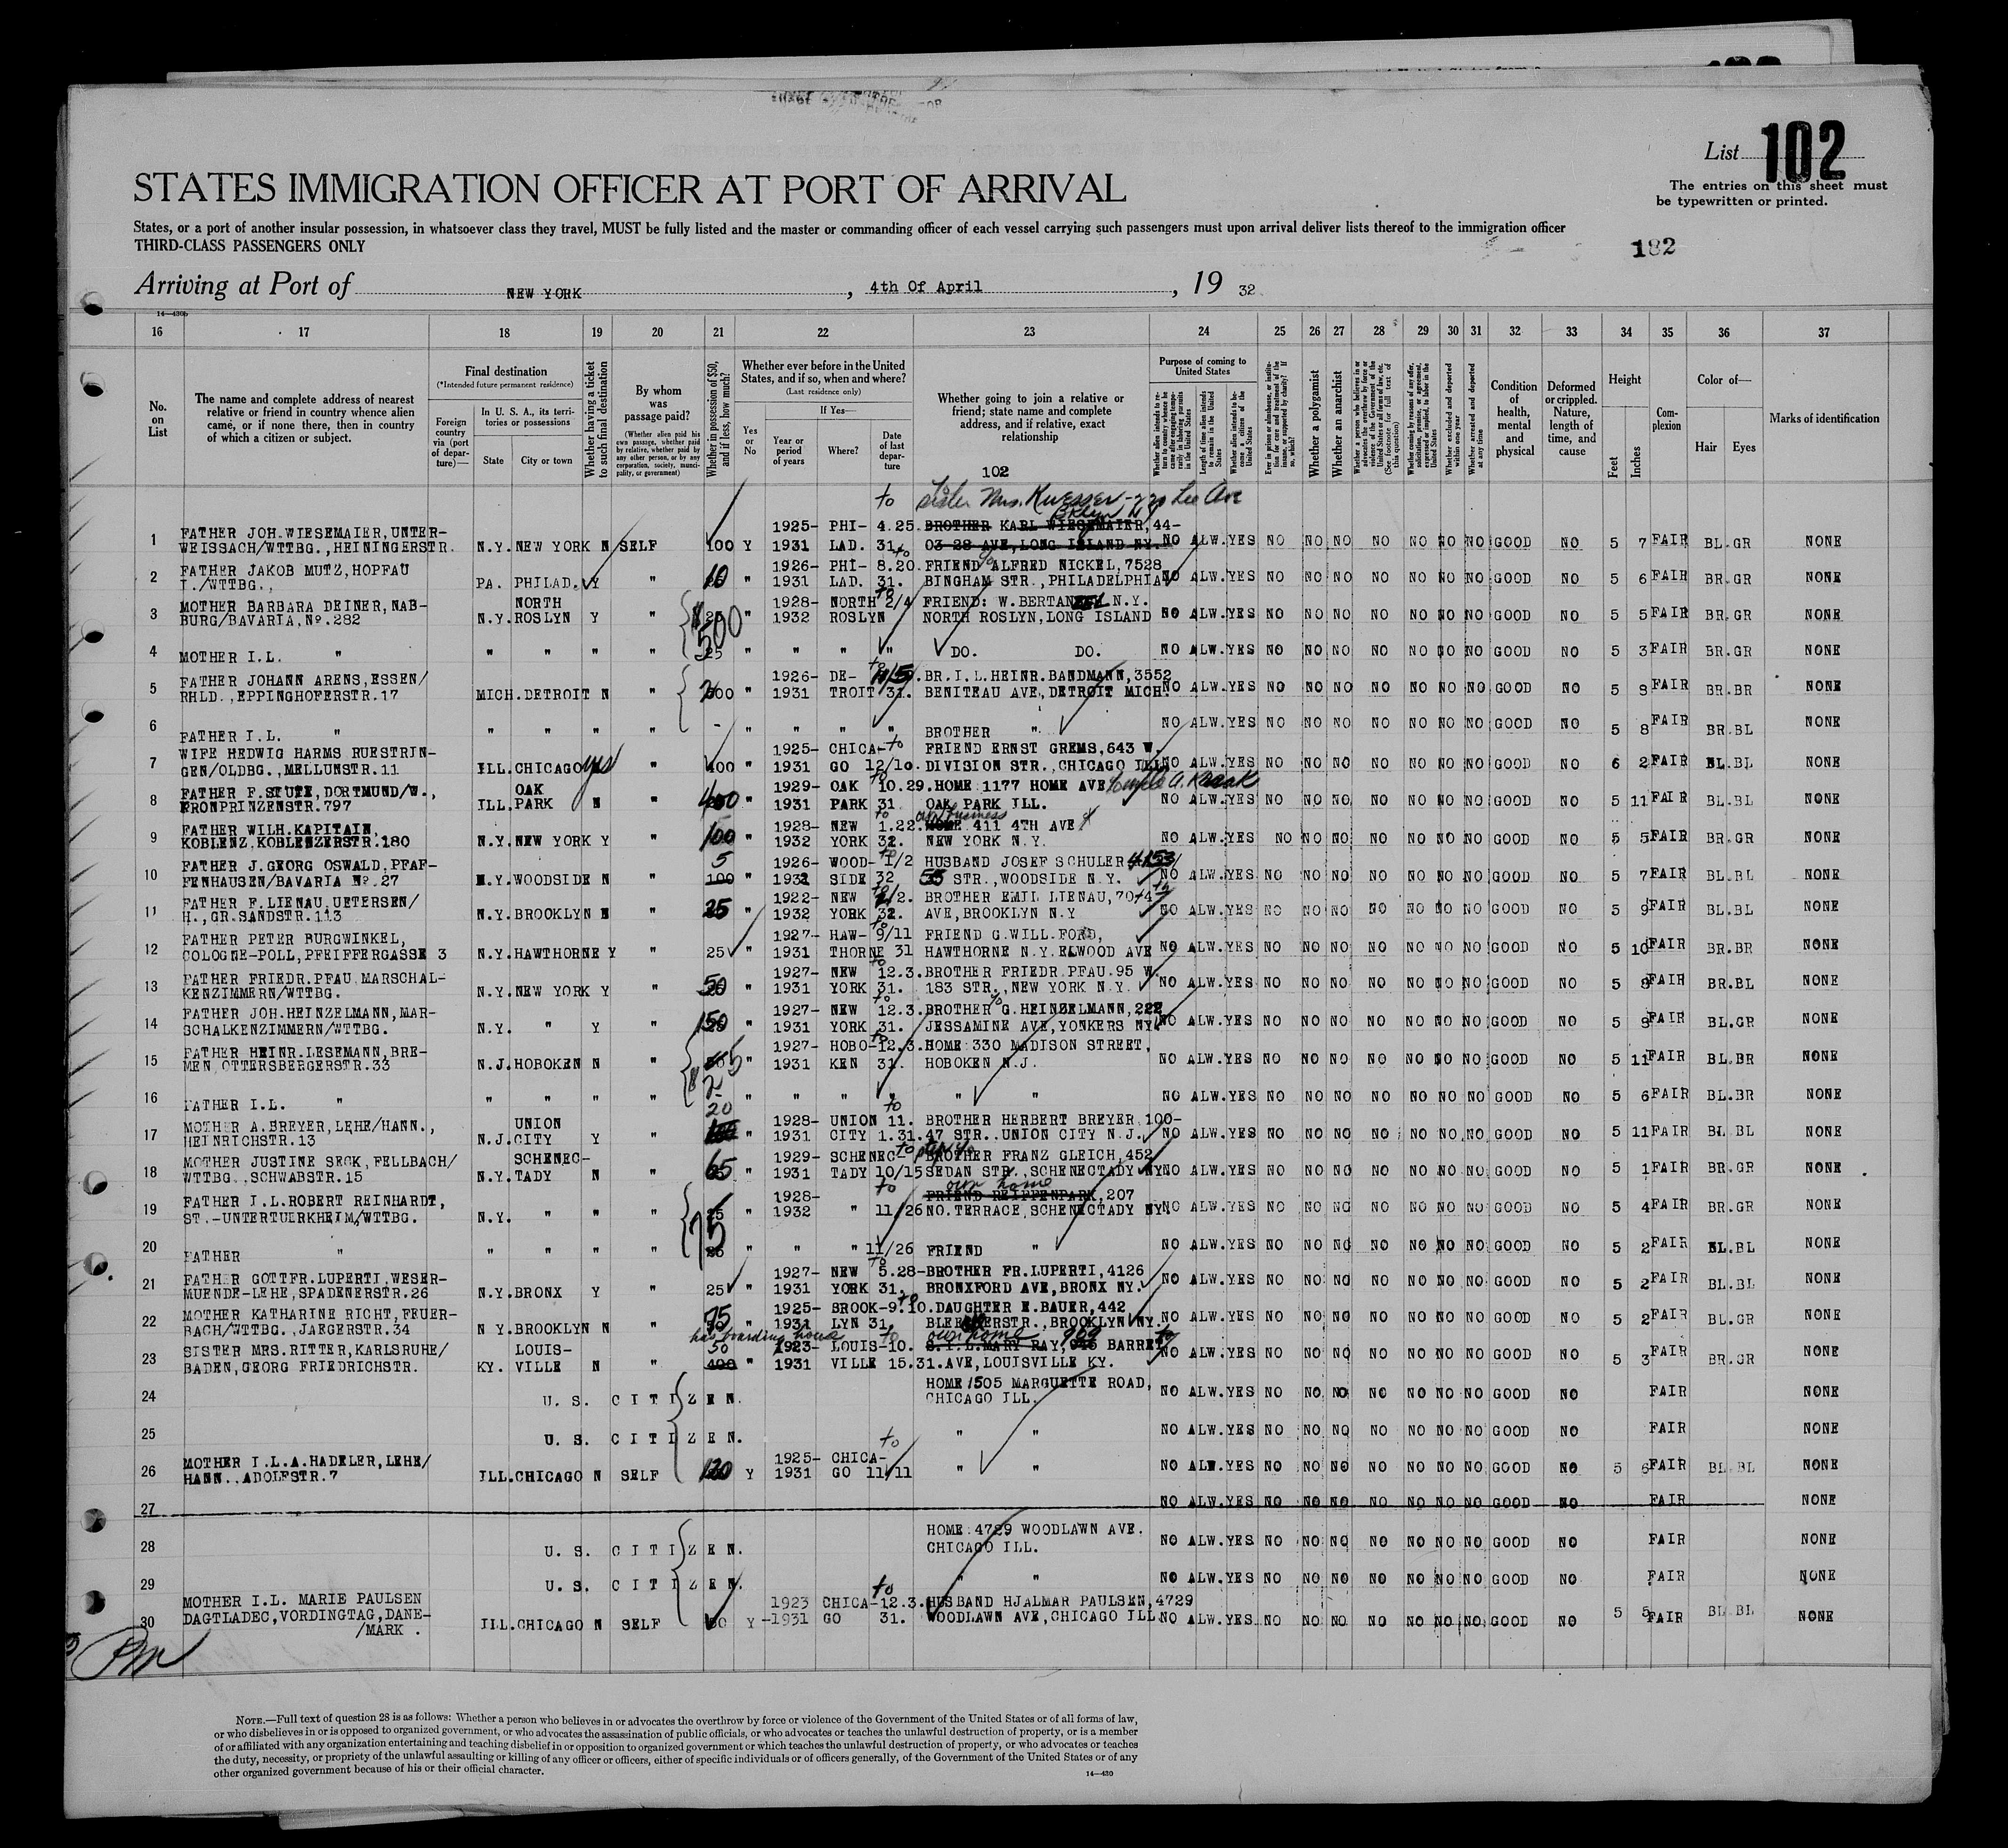 List 102
The entries on this sheet must
be typewritten or printed.
STATES IMMIGRATION OFFICER AT PORT OF ARRIVAL
States, or a port of another insular possession, in whatsoever class they travel, MUST be fully listed and the master or commanding officer of each vessel carrying such passengers must upon arrival deliver lists thereof to the immigration officer
THIRD-CLASS PASSENGERS ONLY
182
Arriving at Port of NEW YORK, 4th Of April, 19 32
14—430b
16 17 18 19 20 21 22 23 24 25 26 27 28 29 30 31 32 33 34 35 36 37
No. on List
The name and complete address of nearest relative or friend in country whence alien came, or if none there, then in country of which a citizen or subject.
Final destination
(*Intended future permanent residence)
Foreign country via (port of departure)—
In U. S. A., its territories or possessions
State City or town
Whether having a ticket to such final destination
By whom was passage paid?
(Whether alien paid his own passage, whether paid by relative, whether paid by any other person, or by any corporation, society, municipality, or government)
Whether in possession of $50, and if less, how much?
Whether ever before in the United States, and if so, when and where?
(Last residence only)
Yes or No
If Yes—
Year or period of years Where? Date of last departure
Whether going to join a relative or friend; state name and complete address, and if relative, exact relationship
102
Purpose of coming to United States
Whether a polygamist
Whether an anarchist
Whether excluded and deported within one year
Whether arrested and deported at any time
Condition of health, mental and physical
Deformed or crippled. Nature, length of time, and cause
Height
Feet Inches
Complexion
Color of—
Hair Eyes
Marks of identification
to sister Mrs. Kuesser - 220 Lee Ave
Bklyn NY
1 FATHER JOH.WIESEMAIER,UNTER- 1925- PHI- 4.25. BROTHER KARL WIESEMAIER,44-
WEISSACH/WTTBG.,HEININGERSTR. N.Y. NEW YORK N SELF 100 Y 1931 LAD. 31. 03 28 AVE,LONG ISLAND NY. NO ALW.YES NO NO NO NO NO NO NO GOOD NO 5 7 FAIR BL.GR NONE
2 FATHER JAKOB MUTZ,HOPFAU 1926- PHI- 8.20. FRIEND ALFRED NICKEL,7528
I./WTTBG., PA. PHILAD. Y " 10 " 1931 LAD. 31. BINGHAM STR.,PHILADELPHIA NO ALW.YES NO NO NO NO NO NO NO GOOD NO 5 6 FAIR BR.GR NONE
3 MOTHER BARBARA DEINER,NAB- NORTH 1928- NORTH 2/4 FRIEND: W. N.Y.
BURG/BAVARIA,No.282 N.Y. ROSLYN Y " $500 " 1932 ROSLYN NORTH ROSLYN,LONG ISLAND NO ALW.YES NO NO NO NO NO NO NO GOOD NO 5 5 FAIR BR.GR NONE
4 MOTHER I.L. " " " " " 25 " " " " DO. DO. NO ALW.YES NO NO NO NO NO NO NO GOOD NO 5 3 FAIR BR.GR NONE
5 FATHER JOHANN ARENS,ESSEN/ 1926- DE- BR.I.L.HEINR.BANDMANN,3552
RHLD.,EPPINGHOFERSTR.17 MICH. DETROIT N " " 1931 TROIT 31. BENITEAU AVE,DETROIT MICH. NO ALW.YES NO NO NO NO NO NO NO GOOD NO 5 8 FAIR BR.BR NONE
6 FATHER I.L. " " " " " - " " " " BROTHER " NO ALW.YES NO NO NO NO NO NO NO GOOD NO 5 8 FAIR BR.BL NONE
7 WIFE HEDWIG HARMS RUESTRIN- 1925- CHICA- to FRIEND ERNST GREMS,643 W.
GEN/OLDBG.,MELLUNSTR.11 ILL. CHICAGO yes " 100 " 1931 GO 12/10. DIVISION STR.,CHICAGO ILL. NO ALW.YES NO NO NO NO NO NO NO GOOD NO 6 2 FAIR BL.BL NONE
8 FATHER F.STUTZ,DORTMUND/W., OAK 1929- OAK 10.29. HOME 1177 HOME AVE
KRONPRINZENSTR.797 ILL. PARK N " 400 " 1931 PARK 31 OAK PARK ILL. NO ALW.YES NO NO NO NO NO NO NO GOOD NO 5 11 FAIR BL.BL NONE
9 FATHER WILH.KAPITAIN, 1928- NEW 1.22. own business HOME 411 4TH AVE
KOBLENZ,KOBLENZERSTR.180 N.Y. NEW YORK Y " 100 " 1932 YORK 32. NEW YORK N.Y. NO ALW.YES NO NO NO NO NO NO NO GOOD NO 5 5 FAIR BR.GR NONE
10 FATHER J.GEORG OSWALD,PFAF- 5 1926- WOOD- 1/2 HUSBAND JOSEF SCHULER 4153
FENHAUSEN/BAVARIA No.27 N.Y. WOODSIDE N " 100 " 1932 SIDE 32 STR.,WOODSIDE N.Y. NO ALW.YES NO NO NO NO NO NO NO GOOD NO 5 7 FAIR BL.BL NONE
11 FATHER F.LIENAU,UETERSEN/ 1922- NEW 2/2. BROTHER EMIL LIENAU,70-4th
H.,GR.SANDSTR.113 N.Y. BROOKLYN N " 25 " 1932 YORK 32. AVE,BROOKLYN N.Y NO ALW.YES NO NO NO NO NO NO NO GOOD NO 5 9 FAIR BL.BL NONE
12 FATHER PETER BURGWINKEL, 1927- HAW- 9/11 FRIEND G.WILL.FORD,
COLOGNE-POLL,PFEIFFERGASSE 3 N.Y. HAWTHORNE Y " 25 " 1931 THORNE 31 HAWTHORNE N.Y.ELWOOD AVE NO ALW.YES NO NO NO NO NO NO NO GOOD NO 5 10 FAIR BR.BR NONE
13 FATHER FRIEDR.PFAU MARSCHAL- 1927- NEW 12.3. BROTHER FRIEDR.PFAU.95 W.
KENZIMMERN/WTTBG. N.Y. NEW YORK Y " 50 " 1931 YORK 31. 183 STR.,NEW YORK N.Y. NO ALW.YES NO NO NO NO NO NO NO GOOD NO 5 8 FAIR BR.BL NONE
14 FATHER JOH.HEINZELMANN,MAR- 1927- NEW 12.3. BROTHER G.HEINZELMANN,222
SCHALKENZIMMERN/WTTBG. N.Y. " Y " 150 " 1931 YORK 31. JESSAMINE AVE,YONKERS NY. NO ALW.YES NO NO NO NO NO NO NO GOOD NO 5 8 FAIR BL.GR NONE
15 FATHER HEINR.LESEMANN,BRE- 1927- HOBO- 12.3. HOME 330 MADISON STREET,
MEN OTTERSBERGERSTR.33 N.J. HOBOKEN N " " 1931 KEN 31. HOBOKEN N.J. NO ALW.YES NO NO NO NO NO NO NO GOOD NO 5 11 FAIR BL.BR NONE
16 FATHER I.L. " " " " " " " " " " " NO ALW.YES NO NO NO NO NO NO NO GOOD NO 5 6 FAIR BL.BR NONE
17 MOTHER A.BREYER,LEHE/HANN., UNION 20 1928- UNION 11. BROTHER HERBERT BREYER 100-
HEINRICHSTR.13 N.J. CITY Y " " 1931 CITY 1.31. 47 STR.,UNION CITY N.J. NO ALW.YES NO NO NO NO NO NO NO GOOD NO 5 11 FAIR BL BL NONE
18 MOTHER JUSTINE SECK,FELLBACH/ SCHENEC- 1929- SCHENEC- to BROTHER FRANZ GLEICH,452
WTTBG.,SCHWABSTR.15 N.Y. TADY N " 65 " 1931 TADY 10/15 SEDAN STR.,SCHENECTADY NY. NO ALW.YES NO NO NO NO NO NO NO GOOD NO 5 1 FAIR BR.GR NONE
19 FATHER I.L.ROBERT REINHARDT, 1928- to own home FRIEND REIFFENPARK,207
ST.-UNTERTUERKHEIM/WTTBG. N.Y. " " " 75 " 1932 " 11/26 NO.TERRACE,SCHENECTADY NY. NO ALW.YES NO NO NO NO NO NO NO GOOD NO 5 4 FAIR BR.GR NONE
20 FATHER " " " " " " " " 11/26 FRIEND " NO ALW.YES NO NO NO NO NO NO NO GOOD NO 5 2 FAIR BL.BL NONE
21 FATHER GOTTFR.LUPERTI,WESER- 1927- NEW 5.28- BROTHER FR.LUPERTI,4126
MUENDE-LEHE,SPADENERSTR.26 N.Y. BRONX Y " 25 " 1931 YORK 31. BRONXFORD AVE,BRONX NY. NO ALW.YES NO NO NO NO NO NO NO GOOD NO 5 2 FAIR BL.BL NONE
22 MOTHER KATHARINE RICHT,FEUER- 1925- BROOK- 9.10. DAUGHTER E.BAUER,442
BACH/WTTBG.,JAEGERSTR.34 N Y. BROOKLYN N " 75 " 1931 LYN 31. STR.,BROOKLYN NY. NO ALW.YES NO NO NO NO NO NO NO GOOD NO 5 2 FAIR BL.GR NONE
has boarding house to own home 909
23 SISTER MRS.RITTER,KARLSRUHE/ LOUIS- 50 1923- LOUIS- 10. S.I.L.MARY RAY, BARRET
BADEN,GEORG FRIEDRICHSTR. KY. VILLE N " 400 " 1931 VILLE 15.31. AVE,LOUISVILLE KY. NO ALW.YES NO NO NO NO NO NO NO GOOD NO 5 3 FAIR BR.GR NONE
24 U. S. CITIZEN. HOME 1505 MARGUETTE ROAD,
CHICAGO ILL. NO ALW.YES NO NO NO NO NO NO NO GOOD NO FAIR NONE
25 U. S. CITIZEN. " " NO ALW.YES NO NO NO NO NO NO NO GOOD NO FAIR NONE
26 MOTHER I.L.A.HADELER,LEHE/ 1925- CHICA- to
HANN..ADOLFSTR.7 ILL. CHICAGO N SELF 120 Y 1931 GO 11/11 " " NO ALW.YES NO NO NO NO NO NO NO GOOD NO 5 6 FAIR BL.BL NONE
27 NO ALW.YES NO NO NO NO NO NO NO GOOD NO FAIR NONE
28 U. S. CITIZEN. HOME 4729 WOODLAWN AVE.
CHICAGO ILL. NO ALW.YES NO NO NO NO NO NO NO GOOD NO FAIR NONE
29 U. S. CITIZEN. " " NO ALW.YES NO NO NO NO NO NO NO GOOD NO FAIR NONE
30 MOTHER I.L. MARIE PAULSEN 1923 CHICA- 12.3. HUSBAND HJALMAR PAULSEN,4729
DAGTLADEC,VORDINGTAG,DANE- ILL. CHICAGO N SELF Y -1931 GO 31. WOODLAWN AVE,CHICAGO ILL. NO ALW.YES NO NO NO NO NO NO NO GOOD NO 5 5 FAIR BL BL NONE
/MARK .
NOTE.—Full text of question 28 is as follows: Whether a person who believes in or advocates the overthrow by force or violence of the Government of the United States or of all forms of law,
or who disbelieves in or is opposed to organized government, or who advocates the assassination of public officials, or who advocates or teaches the unlawful destruction of property, or is a member
of or affiliated with any organization entertaining and teaching disbelief in or opposition to organized government or which teaches the unlawful destruction of property, or who advocates or teaches
the duty, necessity, or propriety of the unlawful assaulting or killing of any officer or officers, either of specific individuals or of officers generally, of the Government of the United States or of any
other organized government because of his or their official character.
14—430